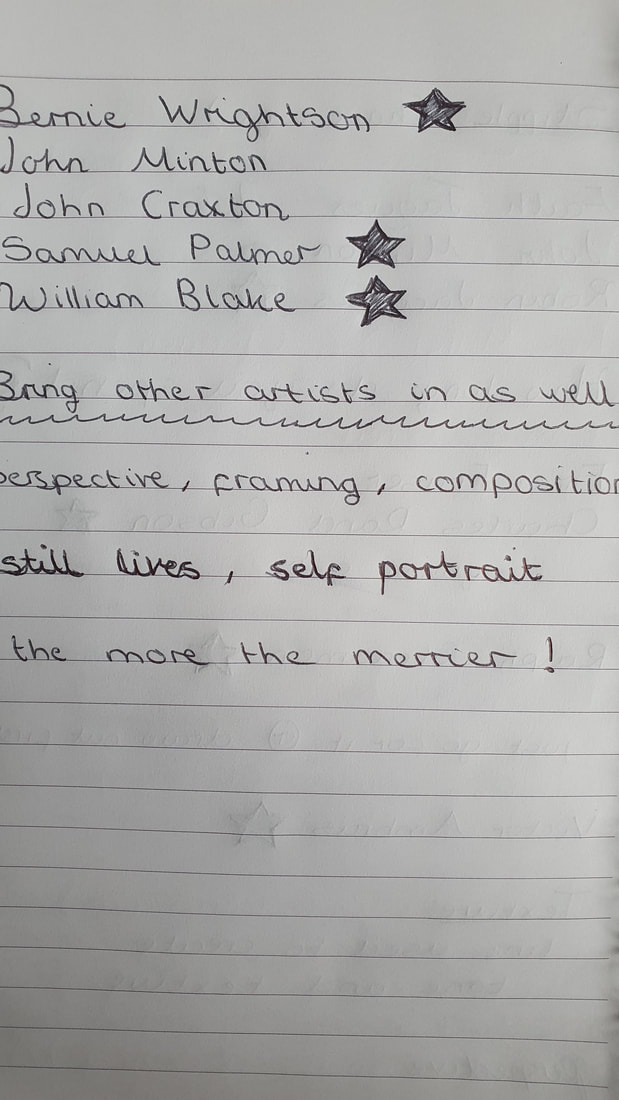 Bernie Wrightson ★
John Minton
John Craxton
Samuel Palmer ★
William Blake ★
Bring other artists in as well
perspective, framing, composition
still lives, self portrait
the more the merrier!